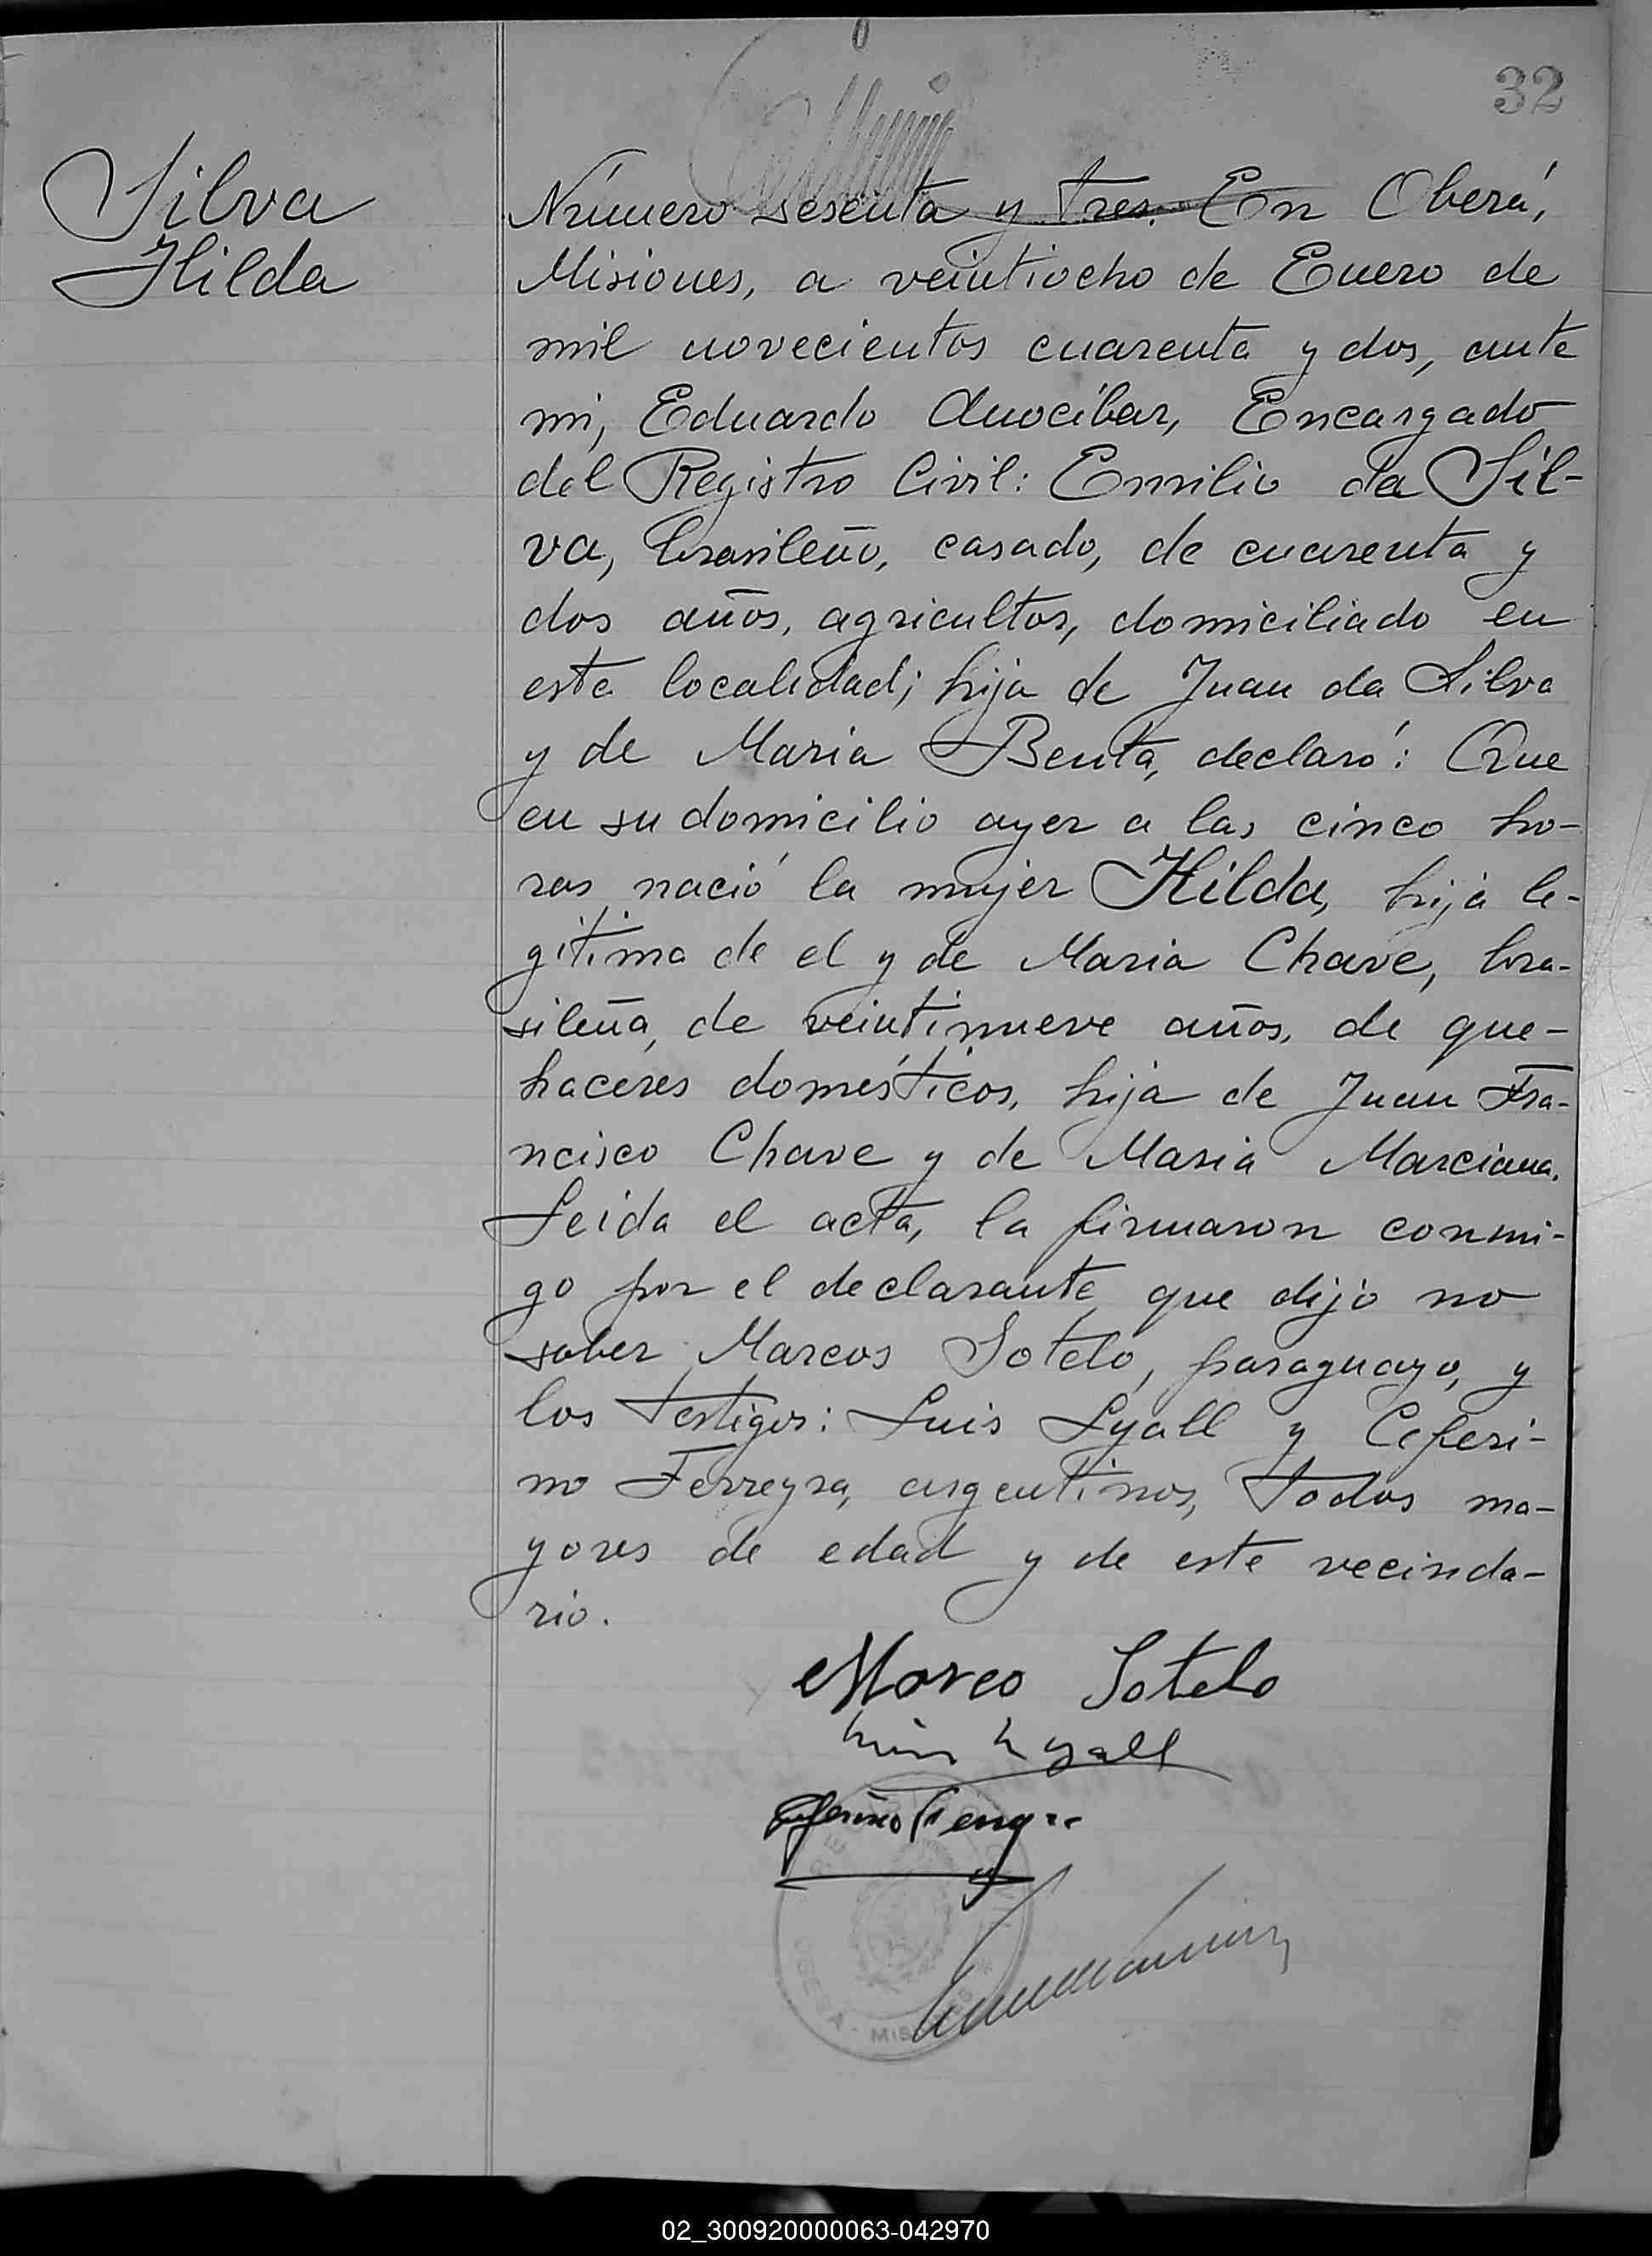 32
Silva
Hilda
Número sesenta y tres. En Oberá,
Misiones, a veintiocho de Enero de
mil novecientos cuarenta y dos, ante
mi, Eduardo Anocíbar, Encargado
del Registro Civil: Emilio da Sil-
va, brasileño, casado, de cuarenta y
dos años, agricultor, domiciliado en
esta localidad; hija de Juan da Silva
y de Maria Benta, declaró: Que
en su domicilio ayer a las cinco ho-
ras nació la mujer Hilda, hija le-
gitima de el y de Maria Chave, bra-
sileña, de veintinueve años, de que-
haceres domésticos, hija de Juan Fra-
ncisco Chave y de Maria Marciana.
Leida el acta, la firmaron conmi-
go por el declarante que dijo no
saber Marcos Sotelo, paraguayo, y
los testigos: Luis Lyall y Ceferi-
no Ferreyra, argentinos, todos ma-
yores de edad y de este vecinda-
rio.
Marco Sotelo
Luis Lyall
OBERA - MISIONES
02_300920000063-042970